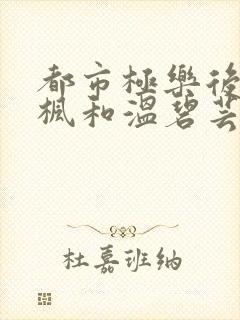 都市極樂後
楓和溫碧芸
杜嘉班納